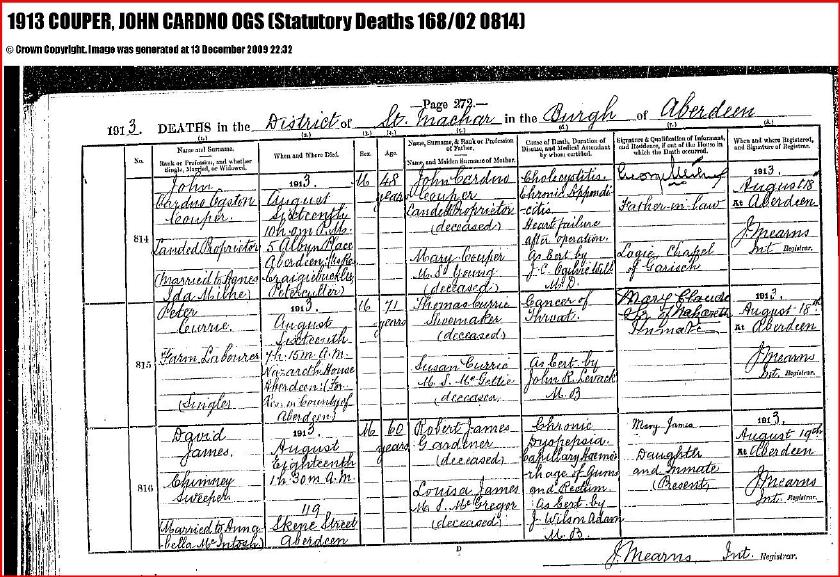 1913 COUPER, JOHN CARDNO OGS (Statutory Deaths 168/02 0814)
© Crown Copyright. Image was generated at 13 December 2009 22:32
—Page 272.—
1913. DEATHS in the District of St. Machar in the Burgh of Aberdeen
No.
Name and Surname.
Rank or Profession, and whether Single, Married, or Widowed.
When and Where Died.
Sex.
Age.
Name, Surname, & Rank or Profession of Father.
Name, and Maiden Surname of Mother.
Cause of Death, Duration of Disease, and Medical Attendant by whom certified.
Signature & Qualification of Informant, and Residence, if out of the House in which the Death occurred.
When and where Registered, and Signature of Registrar.
814
John
Cardno Ogston
Couper.
Landed Proprietor
(Married to Agnes
Ida Milne)
1913.
August
Sixteenth
10h. 0m. P.M.
5 Albyn Place
Aberdeen
Craigiebuckler
Peterculter)
M
48
years
John Cardno
Couper
Landed Proprietor
(deceased)
Mary Couper
M.S. Young
(deceased)
Cholecystitis.
Chronic Appendi
citis
Heart failure
after operation.
As Cert by
J. C. Ogilvie Will
M.D.
Father-in-law
Logie, Chapel
of Garioch
1913.
August 18th
At Aberdeen
J. Mearns
Int. Registrar.
815
Peter
Currie.
Farm Labourer
(Single)
1913.
August
Sixteenth
7h. 15m. A.M.
Nazareth House
Aberdeen (For
Res. in County of
Aberdeen)
M
71
years
Thomas Currie
Shoemaker
(deceased)
Susan Currie
M.S. McGettie
(deceased)
Cancer of
Throat.
As Cert by
John R. Levack
M.B.
Mary Claude
Sr. of Nazareth
Inmate
1913.
August 18th
At Aberdeen
J. Mearns
Int. Registrar.
816
David
James.
Chimney
Sweeper
(Married to Anna-
bella McIntosh)
1913.
August
Eighteenth
1h. 30m A.M.
119
Skene Street
Aberdeen
M
60
years
Robert James
Gardener
(deceased)
Louisa James
M.S. McGregor
(deceased)
Chronic
Dyspepsia
Capillary Haemor
rhage of Gums
and Rectum.
As Cert by
J. Wilson Adam
M.B.
Mary James
Daughter
and Inmate
(Present)
1913.
August 19th
At Aberdeen
J. Mearns
Int. Registrar.
D
J. Mearns Int. Registrar.